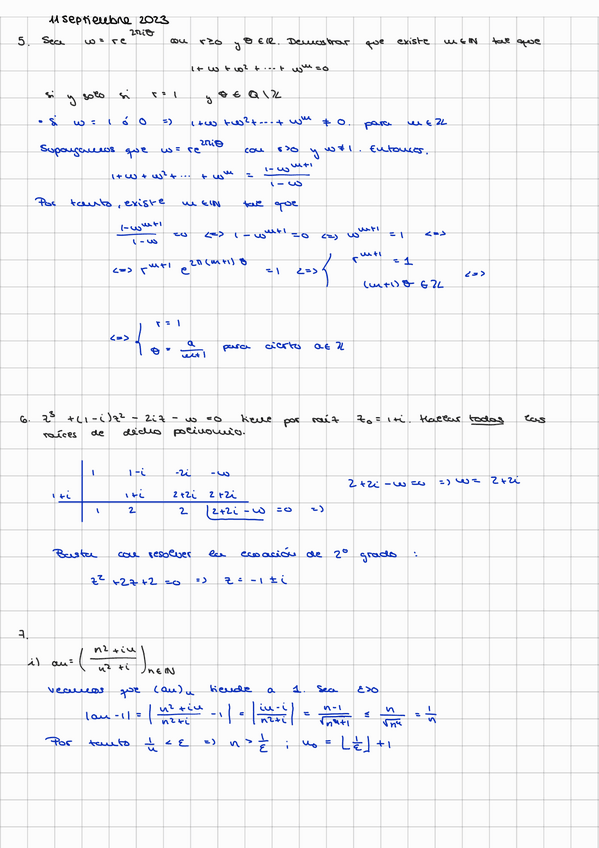 11 septiembre 2023
5. Sea w = re^{2πiθ} con r≥0 y θ ∈ ℝ. Demostrar que existe m∈ℕ tal que
1+w+w²+⋯+w^m=0
si y solo si r=1 y θ ∈ ℚ\ℤ
• Si w=1 ó 0 => 1+w+w²+⋯+w^m ≠ 0. para m∈ℤ
Supongamos que w=re^{2πiθ} con r>0 y w≠1. Entonces,
1+w+w²+⋯+w^m = (1-w^{m+1})/(1-w)
Por tanto, existe m∈ℕ tal que
(1-w^{m+1})/(1-w) =0 <=> 1-w^{m+1}=0 <=> w^{m+1}=1 <=>
<=> r^{m+1} e^{2π(m+1)θ} =1 <=> { r^{m+1}=1
(m+1)θ ∈ ℤ <=>
<=> { r=1
θ = a/(m+1) para cierto a∈ℤ
6. z³+(1-i)z²-2iz-w=0 tiene por raíz z₀=1+i. Hallar todas las
raíces de dicho polinomio.
1 1-i -2i -w
1+i 1+i 2+2i 2+2i
1 2 2 2+2i-w =0 =>
2+2i-w=0 => w=2+2i
Basta con resolver la ecuación de 2º grado :
z²+2z+2=0 => z=-1±i
7.
i) an=((n²+in)/(n²+i))_{n∈ℕ}
veamos que (an)n tiende a 1. Sea ε>0
|an-1|=|(n²+in)/(n²+i) -1|=|(in-i)/(n²+i)|=(n-1)/√(n⁴+1) ≤ n/√n⁴ = 1/n
Por tanto 1/n < ε => n > 1/ε ; n₀ = ⌊1/ε⌋+1